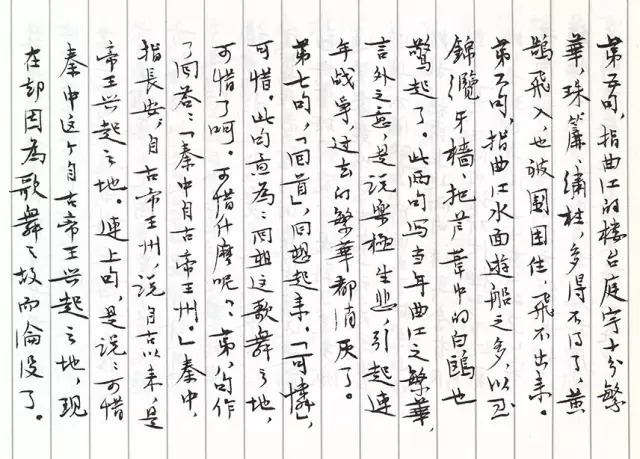 第五句,指曲江的楼台庭宇十分繁
華,珠簾、繡柱,多得不得了,黄
鵠飛入,也被圍困住,飛不出来。
第六句,指曲江水面遊船之多,以至
錦纜牙檣,把芦葦中的白鷗也
驚起了。此兩句写当年曲江之繁華,
言外之意,是说樂極生悲,引起連
年战爭,过去的繁華都消灰了。
第七句,「回首」,回想起来。「可憐」,
可惜。此句意為:回想这歌舞之地,
可惜了呵。可惜什麼呢?第八句作
了回答:「秦中自古帝王州。」秦中,
指長安,自古帝王州,说自古以来,是
帝王兴起之地。連上句,是说:可惜
秦中这个自古帝王兴起之地,现
在却因為歌舞之故而淪没了。